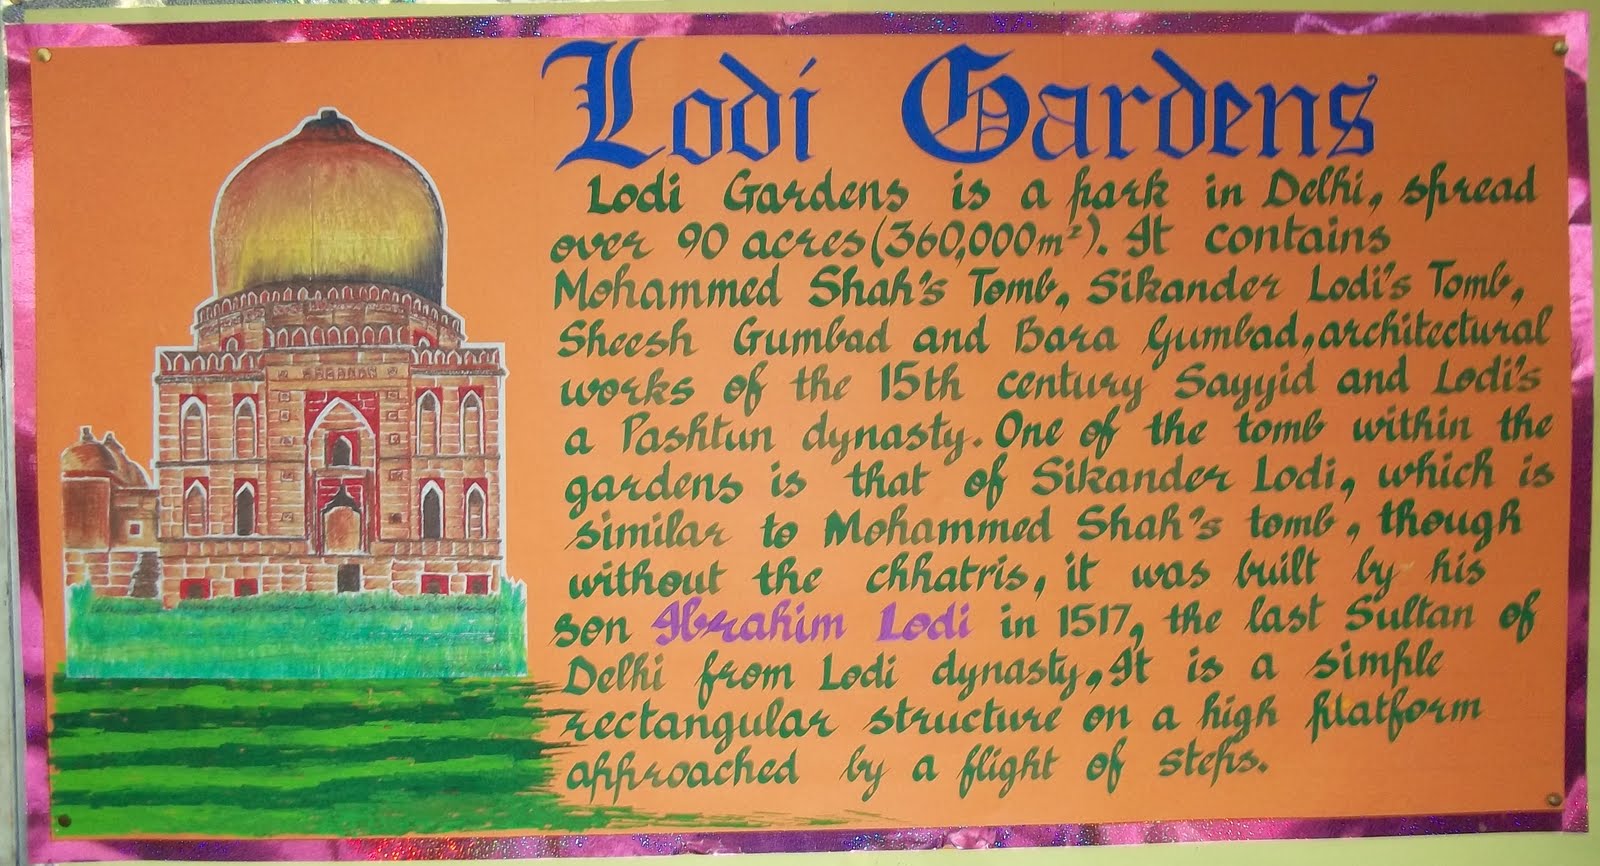 Lodi Gardens
Lodi Gardens is a park in Delhi, spread
over 90 acres (360,000m²). It contains
Mohammed Shah's Tomb, Sikander Lodi's Tomb,
Sheesh Gumbad and Bara Gumbad, architectural
works of the 15th century Sayyid and Lodi's
a Pashtun dynasty. One of the tomb within the
gardens is that of Sikander Lodi, which is
similar to Mohammed Shah's tomb, though
without the chhatris, it was built by his
son Ibrahim Lodi in 1517, the last Sultan of
Delhi from Lodi dynasty, It is a simple
rectangular structure on a high platform
approached by a flight of steps.